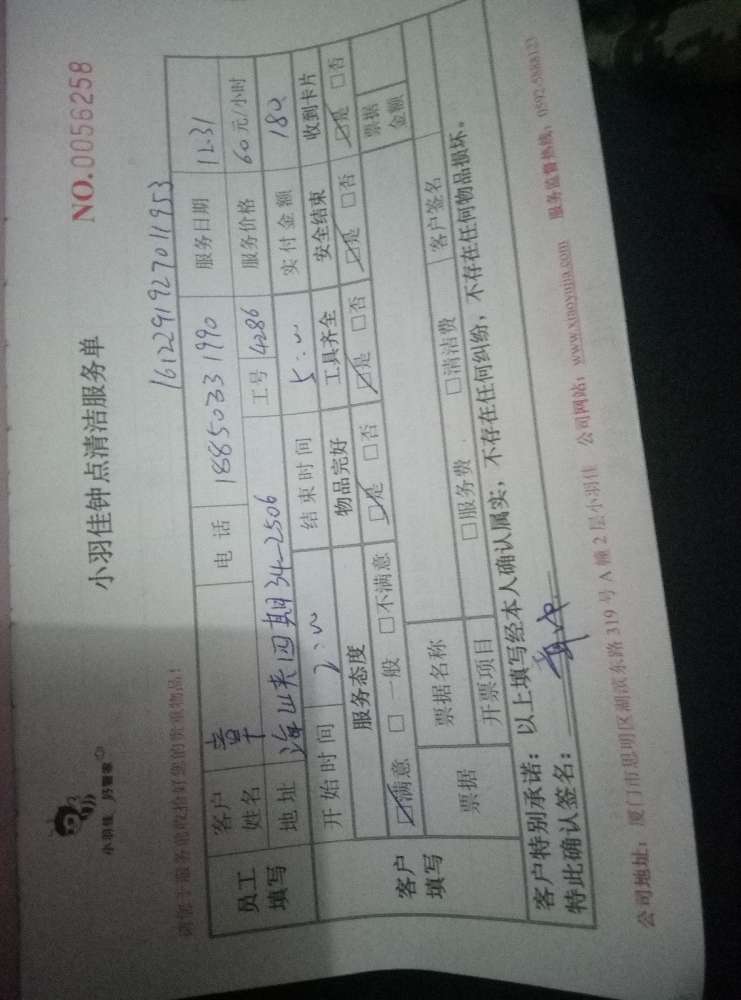 小羽佳 好管家
小羽佳钟点清洁服务单
NO.0056258
161229192701953
请签字服务前收拾好您的贵重物品！
员工填写 客户姓名 章 电话 18850331990 服务日期 12.31
地址 海峡四期34-2506 工号 4286 服务价格 60元/小时
开始时间 2:00 结束时间 5:00 实付金额 180
客户填写 服务态度 物品完好 工具齐全 安全结束 收到卡片
☑满意 □一般 □不满意 ☑是 □否 ☑是 □否 ☑是 □否 ☑是 □否
票据 票据名称 票据金额
开票项目 □服务费 □清洁费 客户签名
客户特别承诺：以上填写经本人确认属实，不存在任何纠纷，不存在任何物品损坏。
特此确认签名：
公司地址：厦门市思明区湖滨东路319号A幢2层小羽佳 公司网站：www.xiaoyujia.com 服务监督热线：0592-5888123